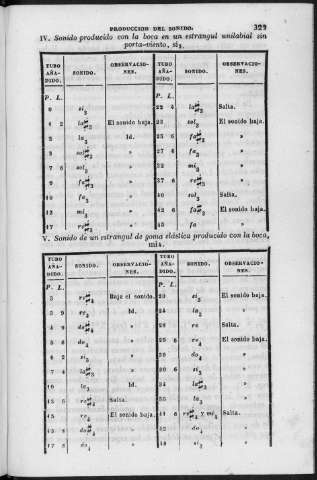 PRODUCCION DEL SONIDO. 329
IV. Sonido producido con la boca en un estrangul unilabial sin
porta-viento, si₃.
TUBO AÑADIDO. SONIDO. OBSERVACIONES. TUBO AÑADIDO. SONIDO. OBSERVACIONES.
P. L. P. L.
0 si₃ 22 4 la♯₃ Salta.
4 2 la♯₃ El sonido baja. 23 sol₃ El sonido baja.
5 la₃ Id. 25 6 fa♯₃ »
sol♯₃ » 27 6 fa₃ »
7 6 sol₃ » 32 mi₃ »
9 fa♯₃ » 37 6 re♯₃ »
10 fa₃ » 40 sol₃ Salta.
13 mi₃ » 42 6 fa♯₃ El sonido baja.
17 re♯₃ » 45 fa »
V. Sonido de un estrangul de goma elástica producido con la boca,
mi₄.
TUBO AÑADIDO. SONIDO. OBSERVACIONES. TUBO AÑADIDO. SONIDO. OBSERVACIONES.
P. L. P. L.
3 re♯₄ Baja el sonido. si₃ El sonido baja.
3 9 re₄ Id. 24 la₃ Id.
4 9 do♯₄ » 28 re Salta.
5 6 do₄ » 6 re₄ El sonido baja.
si₃ » do₄ »
7 4 la♯₃ » 6 si₃ »
10 la₃ Id. 34 la♯₃ »
12 5 re♯₄ Salta. 35 la₃ »
15 re₄ El sonido baja. 41 6 re♯₄ y mi₄ Salta.
do♯₄ » do₄ »
17 8 do₄ » si₃ »